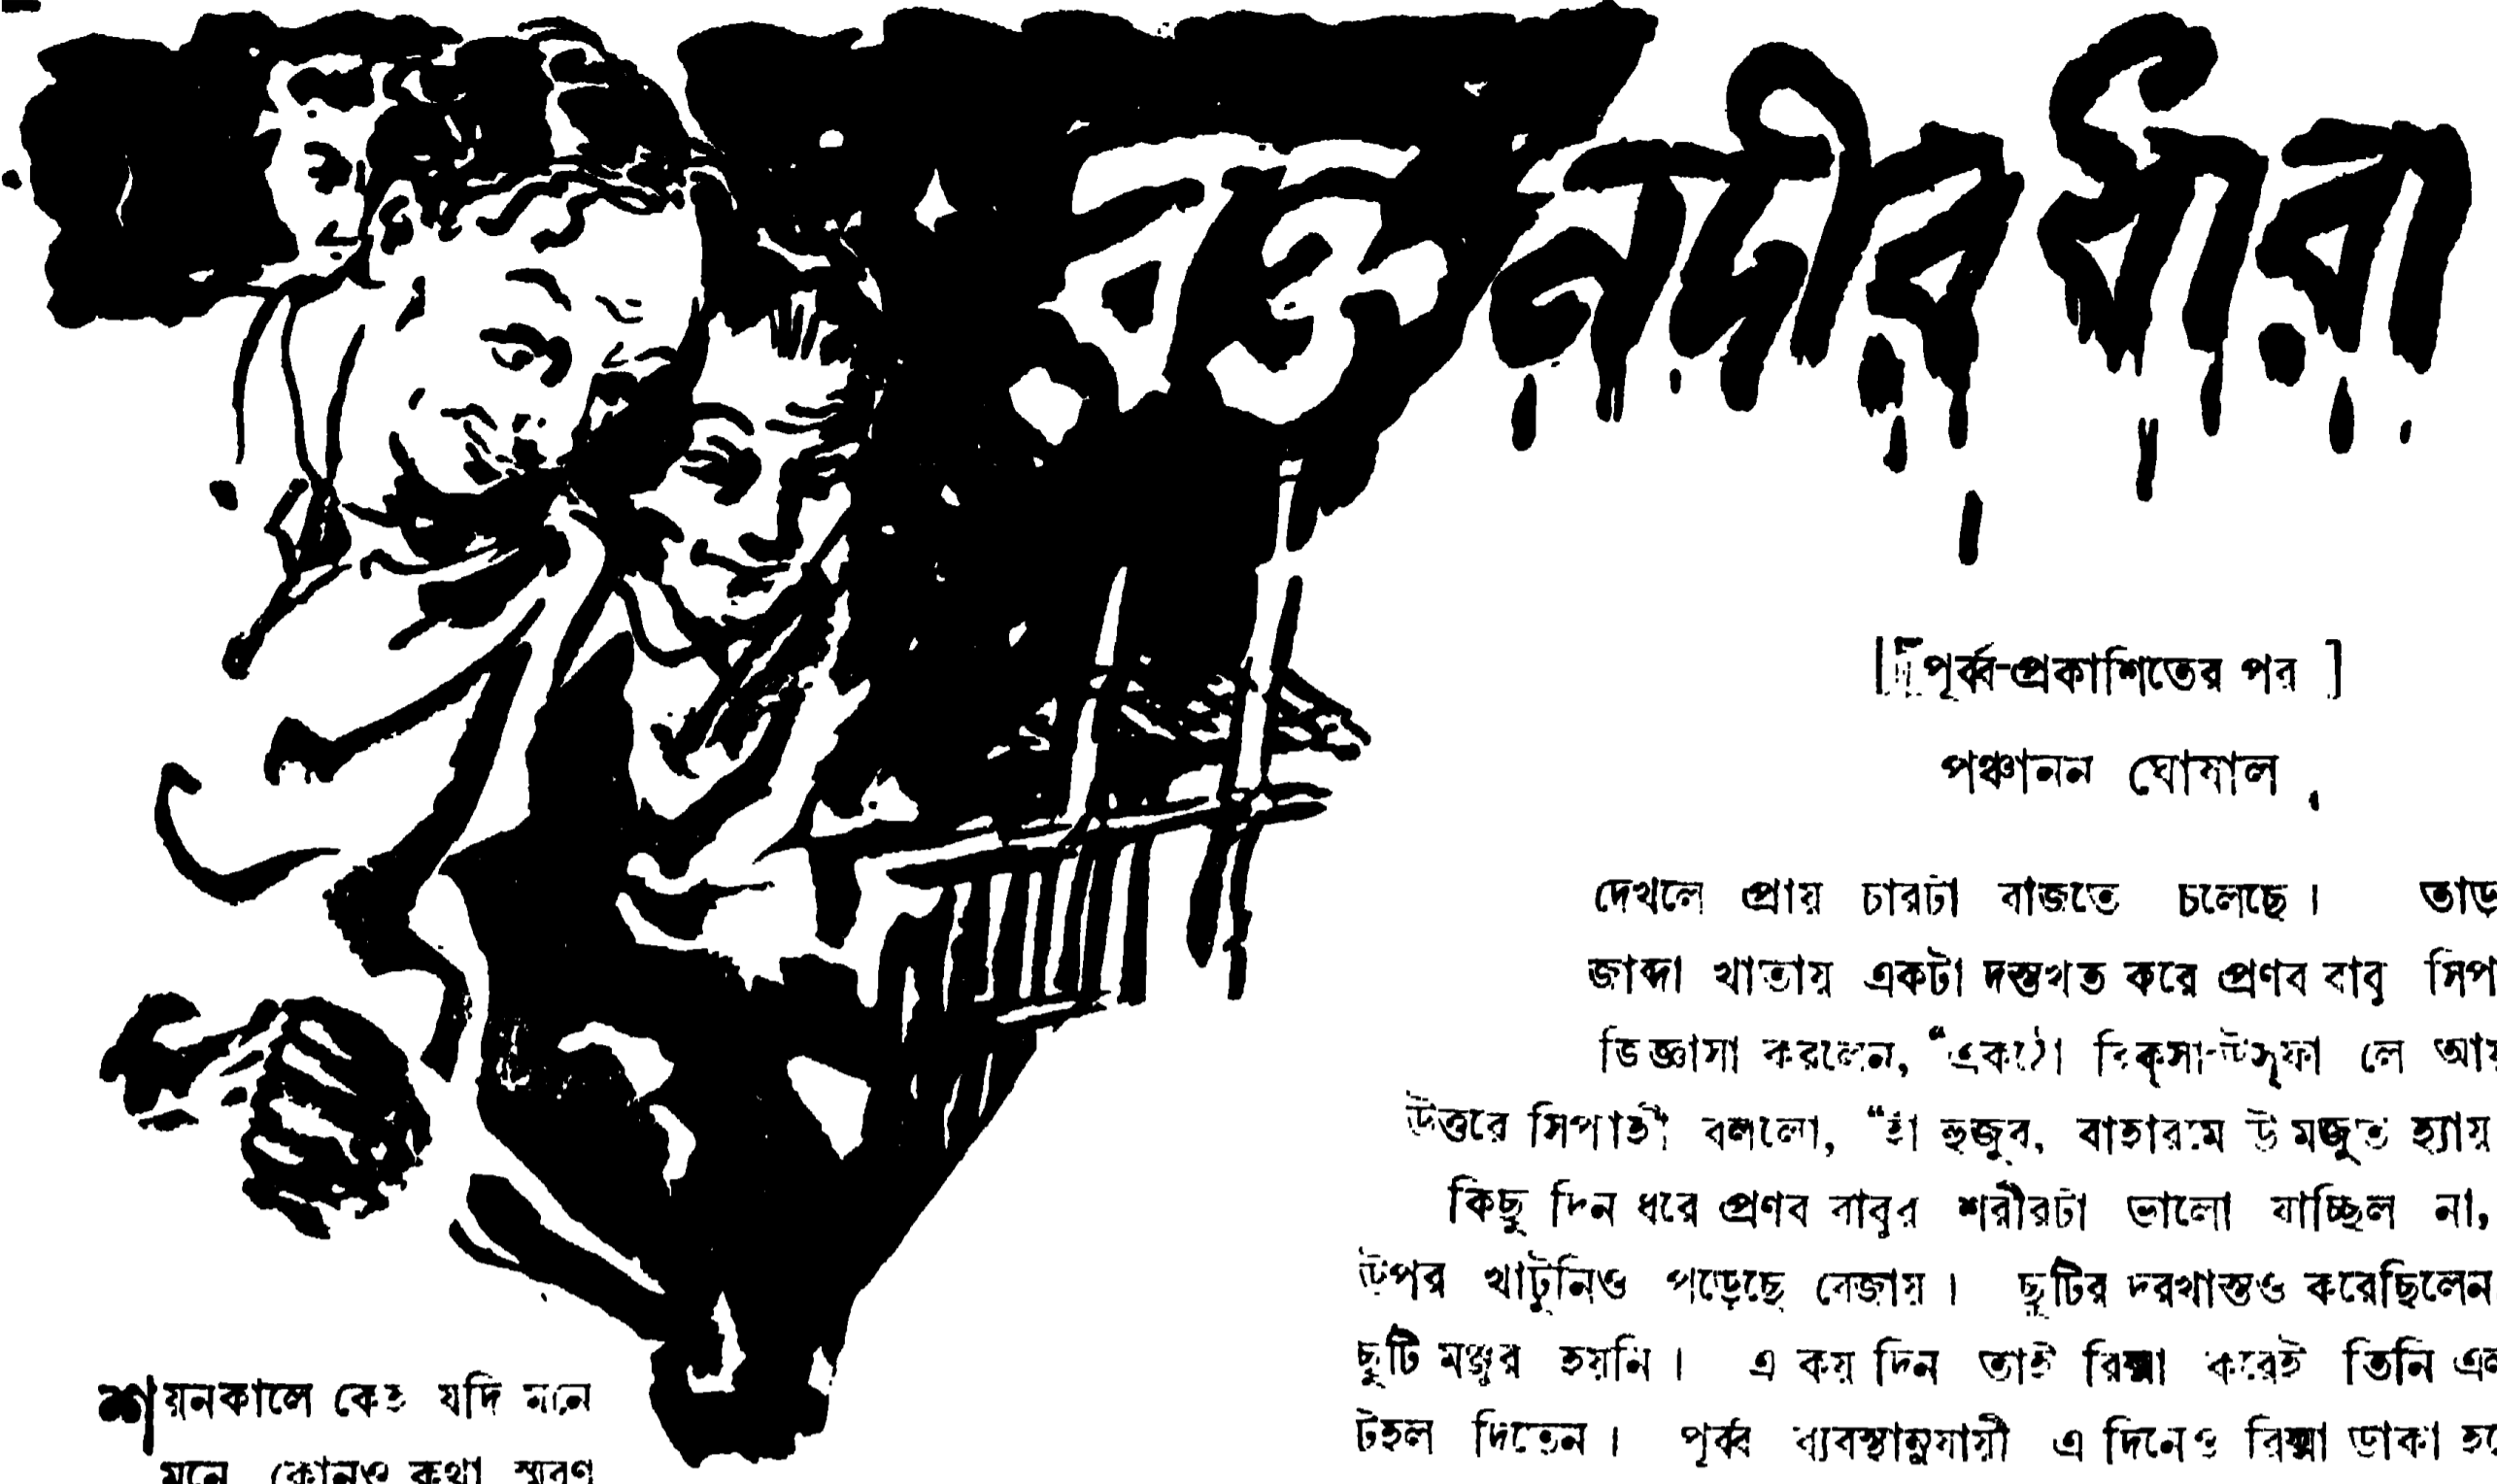 রক্তনদীর ধারা
[পূর্ব্ব-প্রকাশিতের পর ]
পঞ্চানন ঘোষাল
দেখলে প্রায় চারটা বাজতে চলেছে।
জাব্দা খাতায় একটা দস্তখত করে প্রণব বাবু
জিজ্ঞাসা করলেন, "একঠো রিক্‌সা-উসুকা লে
উত্তরে সিপাহী বললো, "হা হুজুর, বাহারমে উ মজুত হ্যায়
কিছু দিন ধরে প্রণব বাবুর শরীরটা ভালো যাচ্ছিল না,
উপর খাটুনিও পড়েছে বেজায়। ছুটির দরখাস্তও করেছিলেন
ছুটি মঞ্জুর হয়নি। এ কয় দিন তাই রিক্সা করেই তিনি
টহল দিতেন। পূর্ব্ব ব্যবস্থানুযায়ী এ দিনেও রিক্সা ডাকা
শয়নকালে কেহ যদি মনে
মনে কোনও কথা স্মরণ